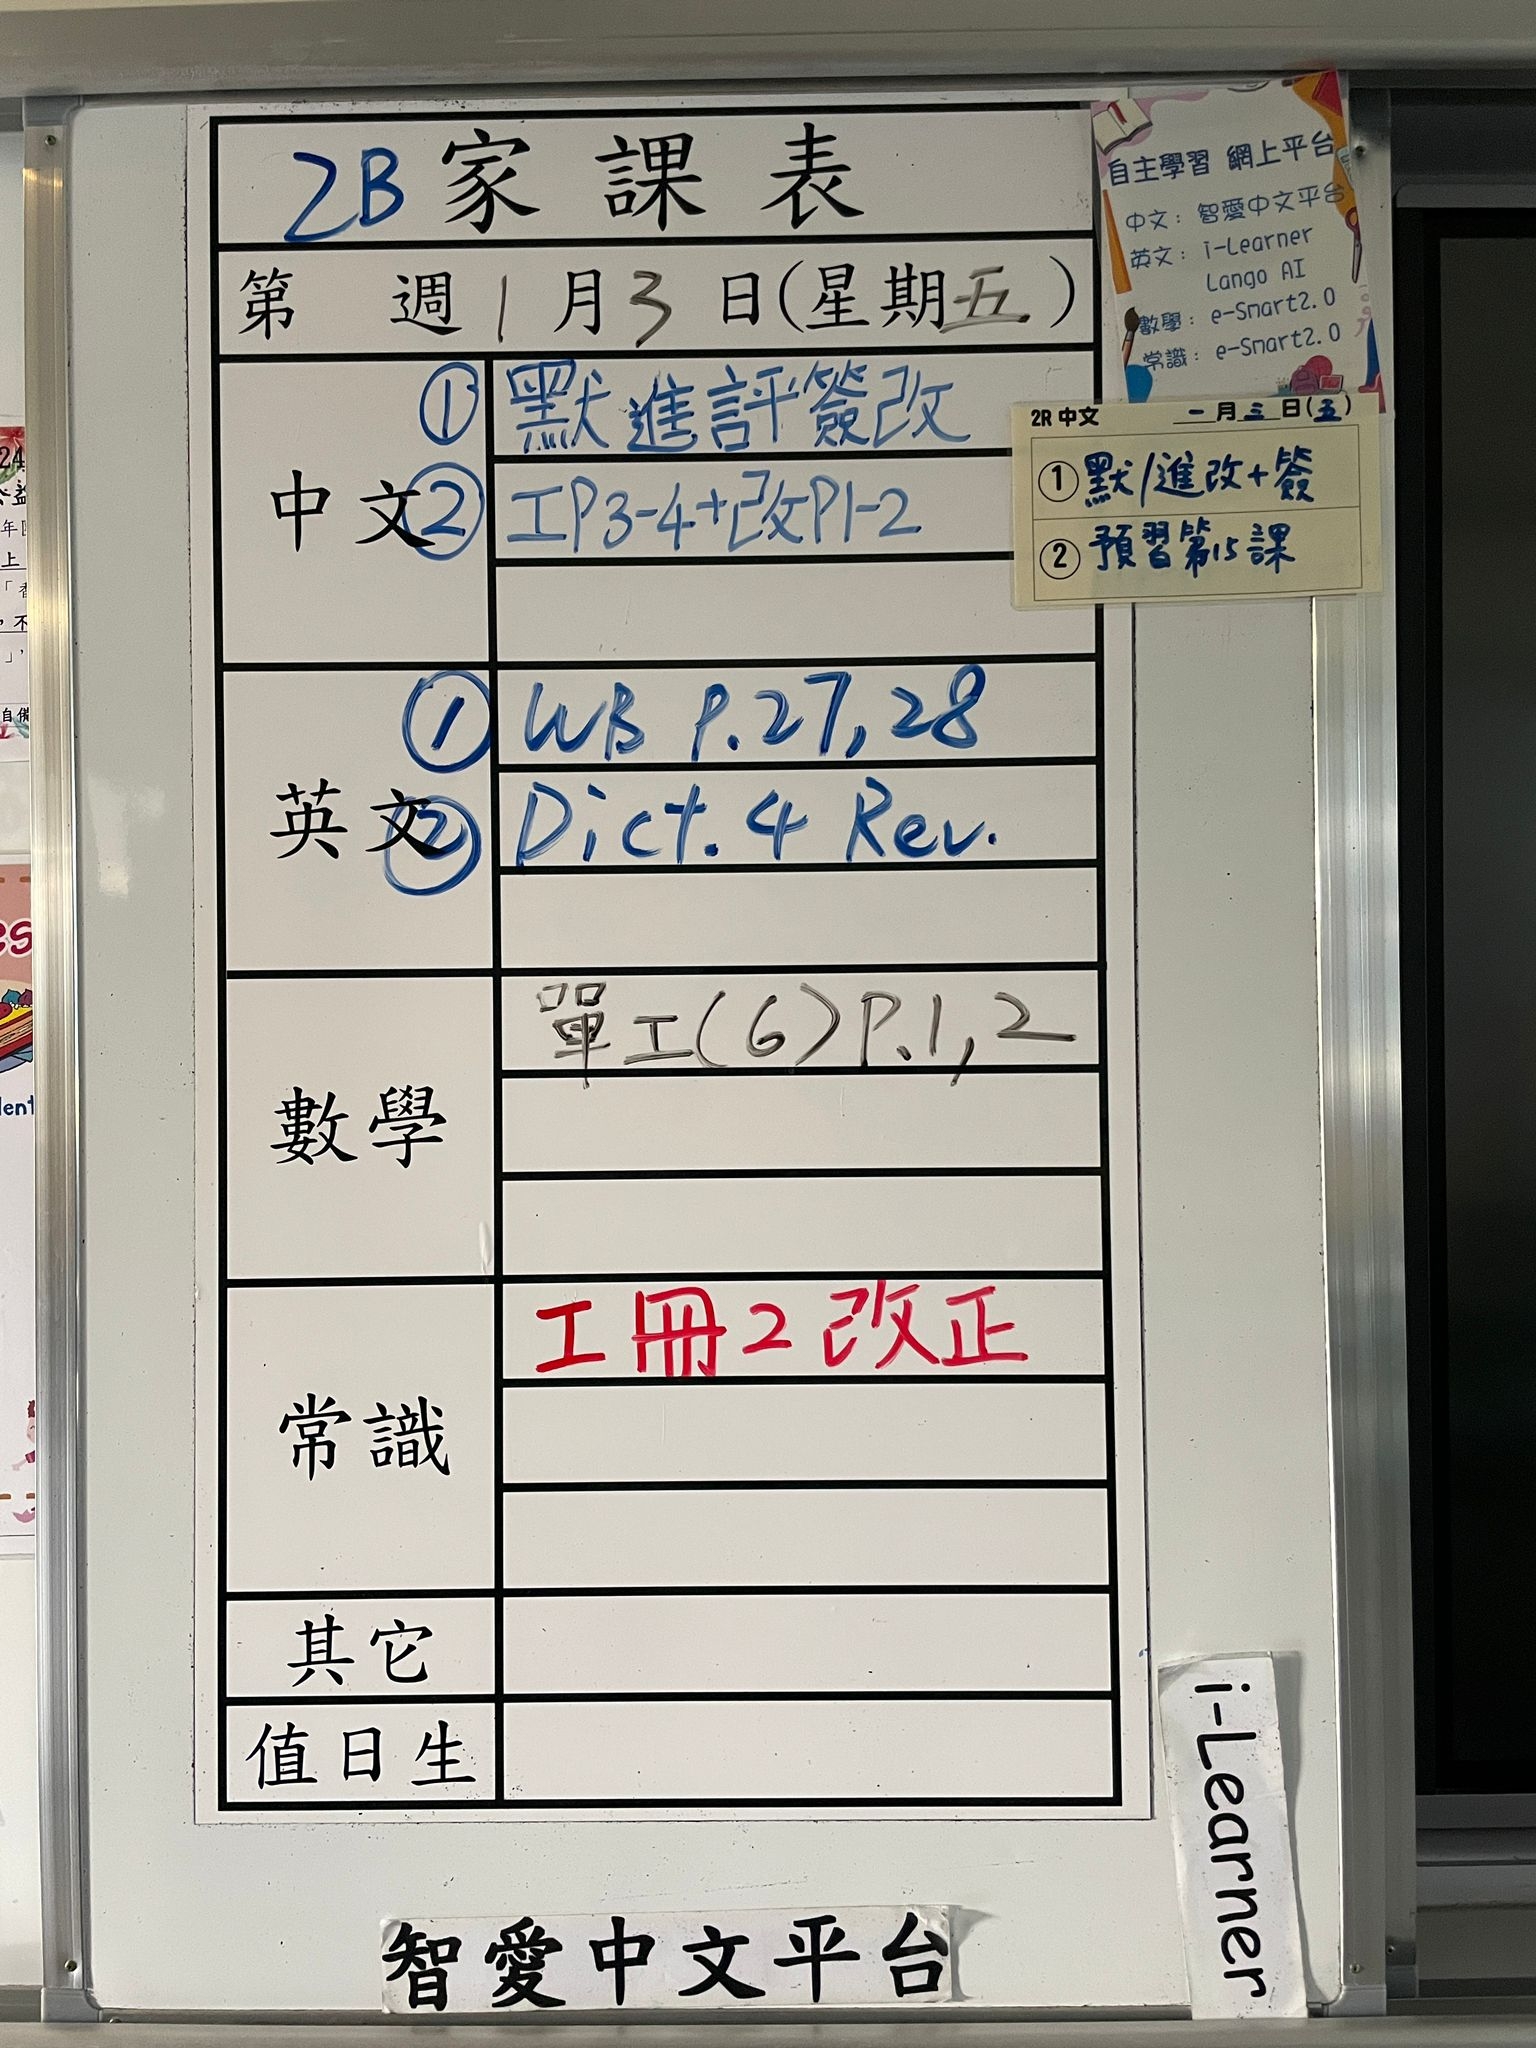 2B 家課表
第 週 1 月 3 日(星期五)
中文
① 默進評簽改
② 工P3-4+改P1-2
英文
① WB P.27,28
② Dict. 4 Rev.
數學
單工(6)P.1,2
常識
工冊2改正
其它
值日生
自主學習 網上平台
中文: 智愛中文平台
英文: i-Learner
Lango AI
數學: e-Smart2.0
常識: e-Smart2.0
2R 中文 一月三日(五)
① 默/進改+簽
② 預習第15課
智愛中文平台
i-Learner
24
公益
上
自備
es